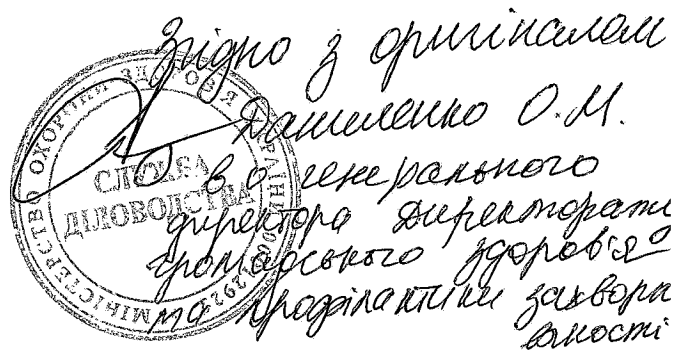 Згідно з оригіналом
Даниленко О.М.
в о генерального
директора Директорату
громадського здоров'я
та профілактики захворю
ваності
МІНІСТЕРСТВО ОХОРОНИ ЗДОРОВ'Я УКРАЇНИ
СЛУЖБА
ДІЛОВОДСТВА